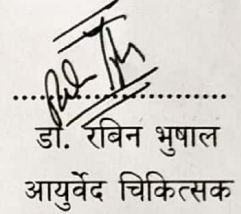 ....................................
डा. रविन भुषाल
आयुर्वेद चिकित्सक